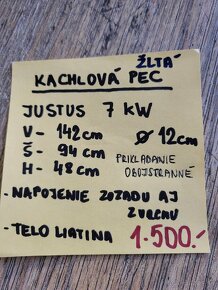 ŽLTÁ
KACHLOVÁ PEC
JUSTUS 7 kW
V- 142cm ⌀ 12cm
Š- 94cm PRIKLADANIE
H- 48cm OBOJSTRANNÉ
- NAPOJENIE ZOZADU AJ
ZVRCHU
- TELO LIATINA 1.500.-